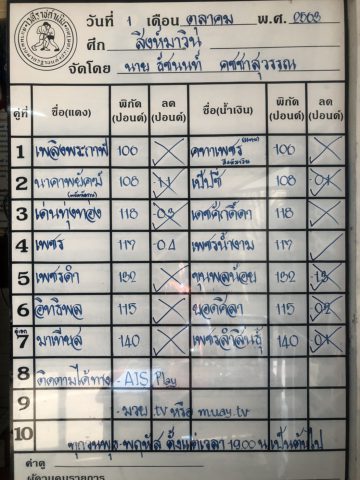 วันที่ 1 เดือน ตุลาคม พ.ศ. 2563
ศึก สิงห์มาวิน
จัดโดย นาย ธัชนนท์ คชชาสุวรรณ
คู่ที่ ชื่อ(แดง) พิกัด (ปอนด์) ลด (ปอนด์) ชื่อ(น้ำเงิน) พิกัด (ปอนด์) ลด (ปอนด์)
1 เพลิงพระกาฬ 106 คทาเพชร 106
2 นาคาพยัคฆ์ 108 เป๊ปซี่ 108
3 เด่นทุ่งทอง 118 03 เดชศักดิ์ดา 118
4 เพชร 117 04 เพชรน้ำงาม 117
5 เพชรดำ 132 ขุนพลน้อย 132 13
6 อิทธิพล 115 ยอดศิลา 115 02
7 มาเทียส 140 เพชรลำสินธุ์ 140 01
8 ติดตามได้ทาง - AIS Play
9 - มวย.tv หรือ muay.tv
10 ทุกวันพุธ-พฤหัส ตั้งแต่เวลา 19.00 น เป็นต้นไป
ค่าดู
ผู้ควบคุมรายการ